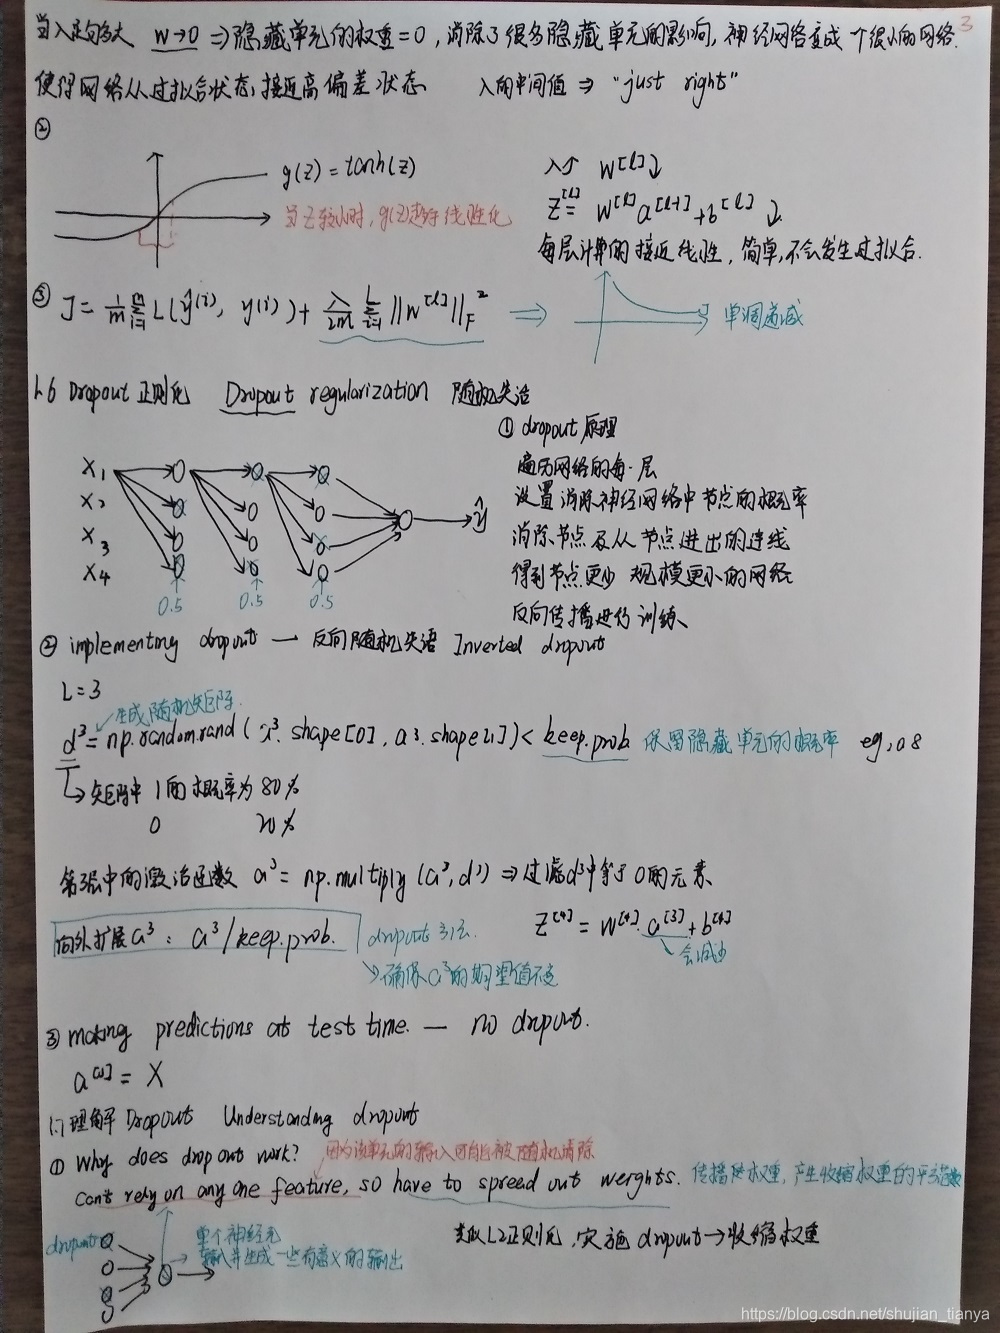 3
当λ足够大 w→0 ⇒隐藏单元的权重=0, 消除了很多隐藏单元的影响, 神经网络变成一个很小的网络.
使得网络从过拟合状态, 接近高偏差状态 λ的中间值 ⇒ "just right"
②
g(z) = tanh(z)
当Z较小时, g(Z)趋于线性化
λ↑ W[l]↓
Z[l]= W[l]a[l-1]+b[l] ↓
每层计算的接近线性, 简单, 不会发生过拟合.
③ J = 1/m Σ L(ŷ(i), y(i)) + λ/2m Σ ||W[l]||F² ⇒ J 单调递减
1.6 Dropout 正则化 Dropout regularization 随机失活
① dropout 原理
遍历网络的每一层
设置消除神经网络中节点的概率
消除节点及从节点进出的连线
得到节点更少 规模更小的网络
反向传播进行训练
X1
X2
X3
X4
ŷ
0.5 0.5 0.5
② implementing dropout — 反向随机失活 Inverted dropout
L=3
生成随机矩阵
d³= np.random.rand(a³.shape[0], a³.shape[1])< keep.prob 保留隐藏单元的概率 eg, 0.8
矩阵中 1的概率为 80%
0 20%
第3层中的激活函数 a³ = np.multiply (a³, d³) ⇒过滤d³中等于0的元素
Z[4] = W[4]. a[3]+b[4]
会减少
向外扩展a³: a³/keep.prob. dropout 方法.
确保a³的期望值不变
③ making predictions at test time. — no dropout.
a[0] = X
1.7 理解 Dropout Understanding dropout
① Why does dropout work? 因为该单元的输入可能被随机清除
Can't rely on any one feature, so have to spread out weights. 传播权重, 产生收缩权重的平方范数
dropout
单个神经元
输入并生成一些有意义的输出
类似L2正则化, 实施 dropout→收缩权重
https://blog.csdn.net/shujian_tianya